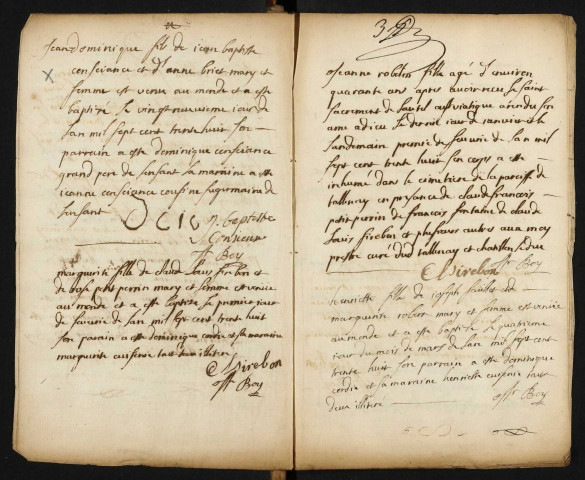 Jean dominique fils de jean baptiste
consciance et d'anne briet mary et
femme est venu au monde et a este
baptisé le vingt neuvieme jour de
l'an mil sept cent trente huit son
parrain a este dominique consciance
grand pere de l'enfant sa maraine a este
jeanne consciance cousine de
l'enfant
j. baptiste
Consience
Boy
marguerite fille de claude louis sirebon et
de petit perrin mary et femme est venue
au monde et a este baptisé le premier jour
de fevrie de l'an mil sept cent trente huit
son parain a este dominique cordie et sa maraine
marguerite tous deux illitéré
C Sirebon
Boy
Jeanne robelin fille agé d'environ
quarante ans apres avoir receu le saint
sacrement de l'autel a rendu son
ame a dieu le dernie jour de janvier et le
landemain premie de fevrie de l'an mil
sept cent trente huit son corps a este
inhumé dans le cimetiere de la paroisse de
tallenay en presance de claude francois
petit perrin de francois fontaine de claude
louis sirebon et plusieurs autres aux moy
prestre curé dud tallenay et chatillon le duc
C Sirebon
Boy
henriette fille de joseph
marguerite robern mary et femme est venüe
au monde et a este baptisé le quatrieme
jour du mois de mars de l'an mil sept cent
trente huit son parrain a este dominique
cordie et sa maraine henriette tous
deux illitéré
Boy